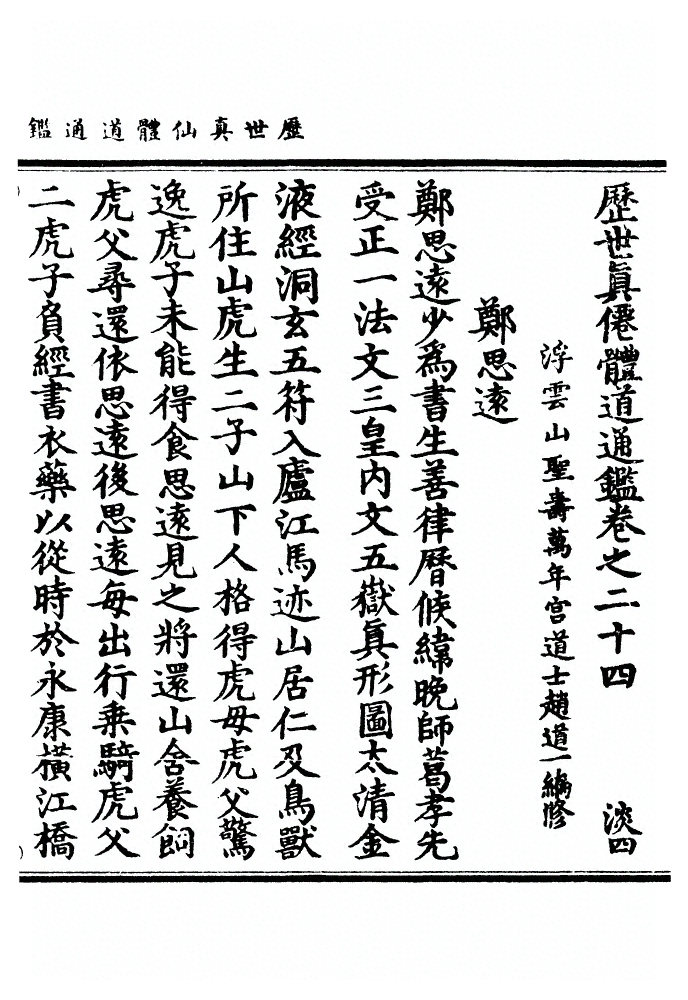 歷世真仙體道通鑑
歷世眞僊體道通鑑卷之二十四 淡四
浮雲山聖壽萬年宮道士趙道一編修
鄭思遠
鄭思遠少為書生善律曆候緯晚師葛孝先
受正一法文三皇內文五嶽眞形圖太清金
液經洞玄五符入廬江馬迹山居仁及鳥獸
所住山虎生二子山下人格得虎母虎父驚
逸虎子未能得食思遠見之將還山舍養飼
虎父尋還依思遠後思遠每出行乘騎虎父
二虎子負經書衣藥以從時於永康橫江橋